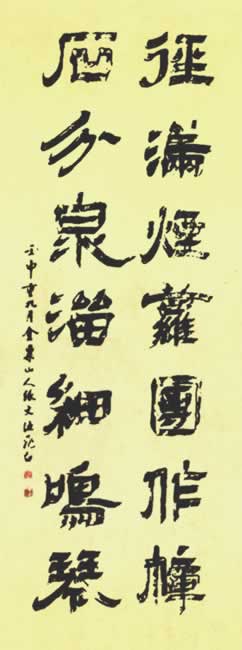 徑滿煙蘿團作幢
石分泉溜細鳴琴
壬申九月金粟山人張文